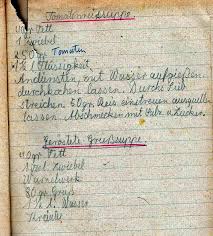 Tomatenreissuppe
40 gr Fett
1 Zwiebel
250 gr Tomaten
1½ l Flüssigkeit
Andünsten, mit Wasser aufgießen
durchkochen lassen. Durchs Sieb
streichen 60 gr. Reis einstreuen ausquellen
lassen. Abschmecken mit Salz u. Zucker.
Geröstete Grießsuppe
40 gr Fett
1 Zwiebel
Wurzelwerk
80 gr Grieß
1½ l. Wasser
Kräuter